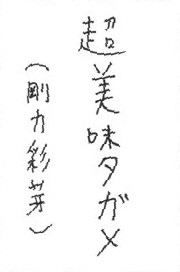 超美味タガメ
(剛力彩芽)